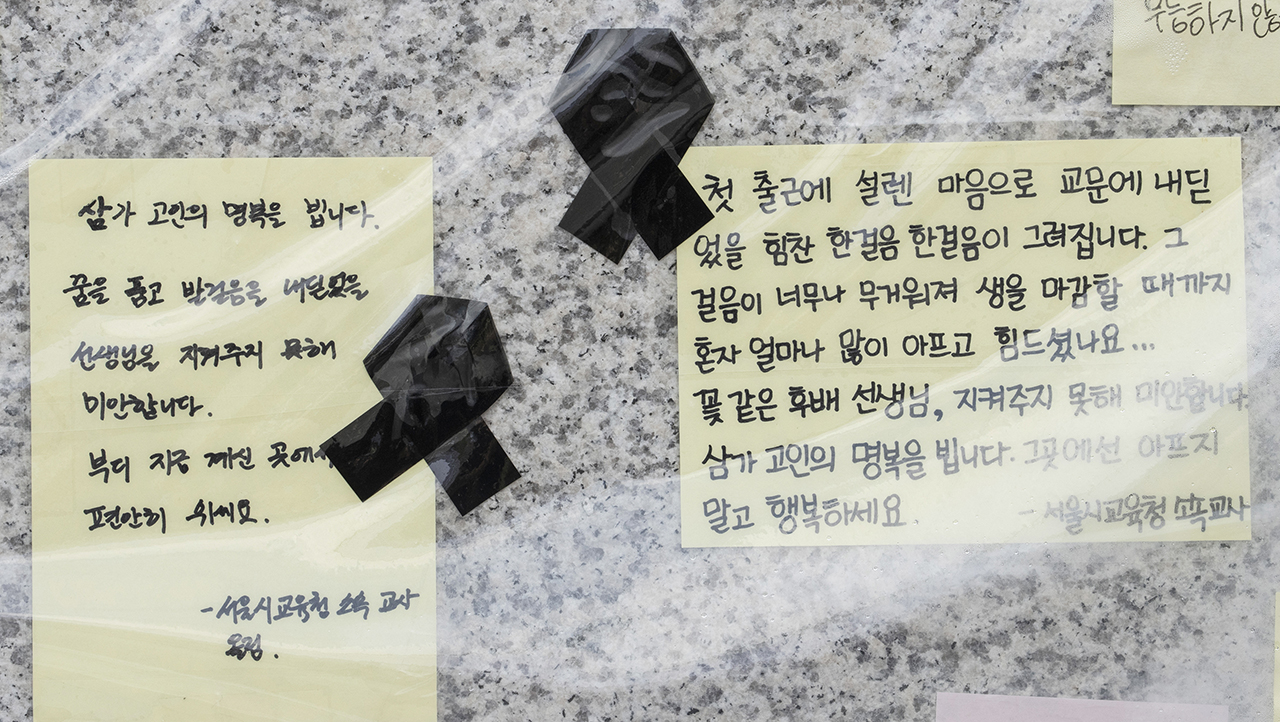 삼가 고인의 명복을 빕니다.
꿈을 품고 발걸음을 내딛었을
선생님을 지켜주지 못해
미안합니다.
부디 지금 계신 곳에서
편안히 쉬세요.
-서울시교육청 소속 교사
올림.
첫 출근에 설렌 마음으로 교문에 내딛
었을 힘찬 한걸음 한걸음이 그려집니다. 그
걸음이 너무나 무거워져 생을 마감할 때까지
혼자 얼마나 많이 아프고 힘드셨나요...
꽃같은 후배 선생님, 지켜주지 못해 미안합니다.
삼가 고인의 명복을 빕니다. 그곳에선 아프지
말고 행복하세요
- 서울시교육청 소속교사
무능하지 않